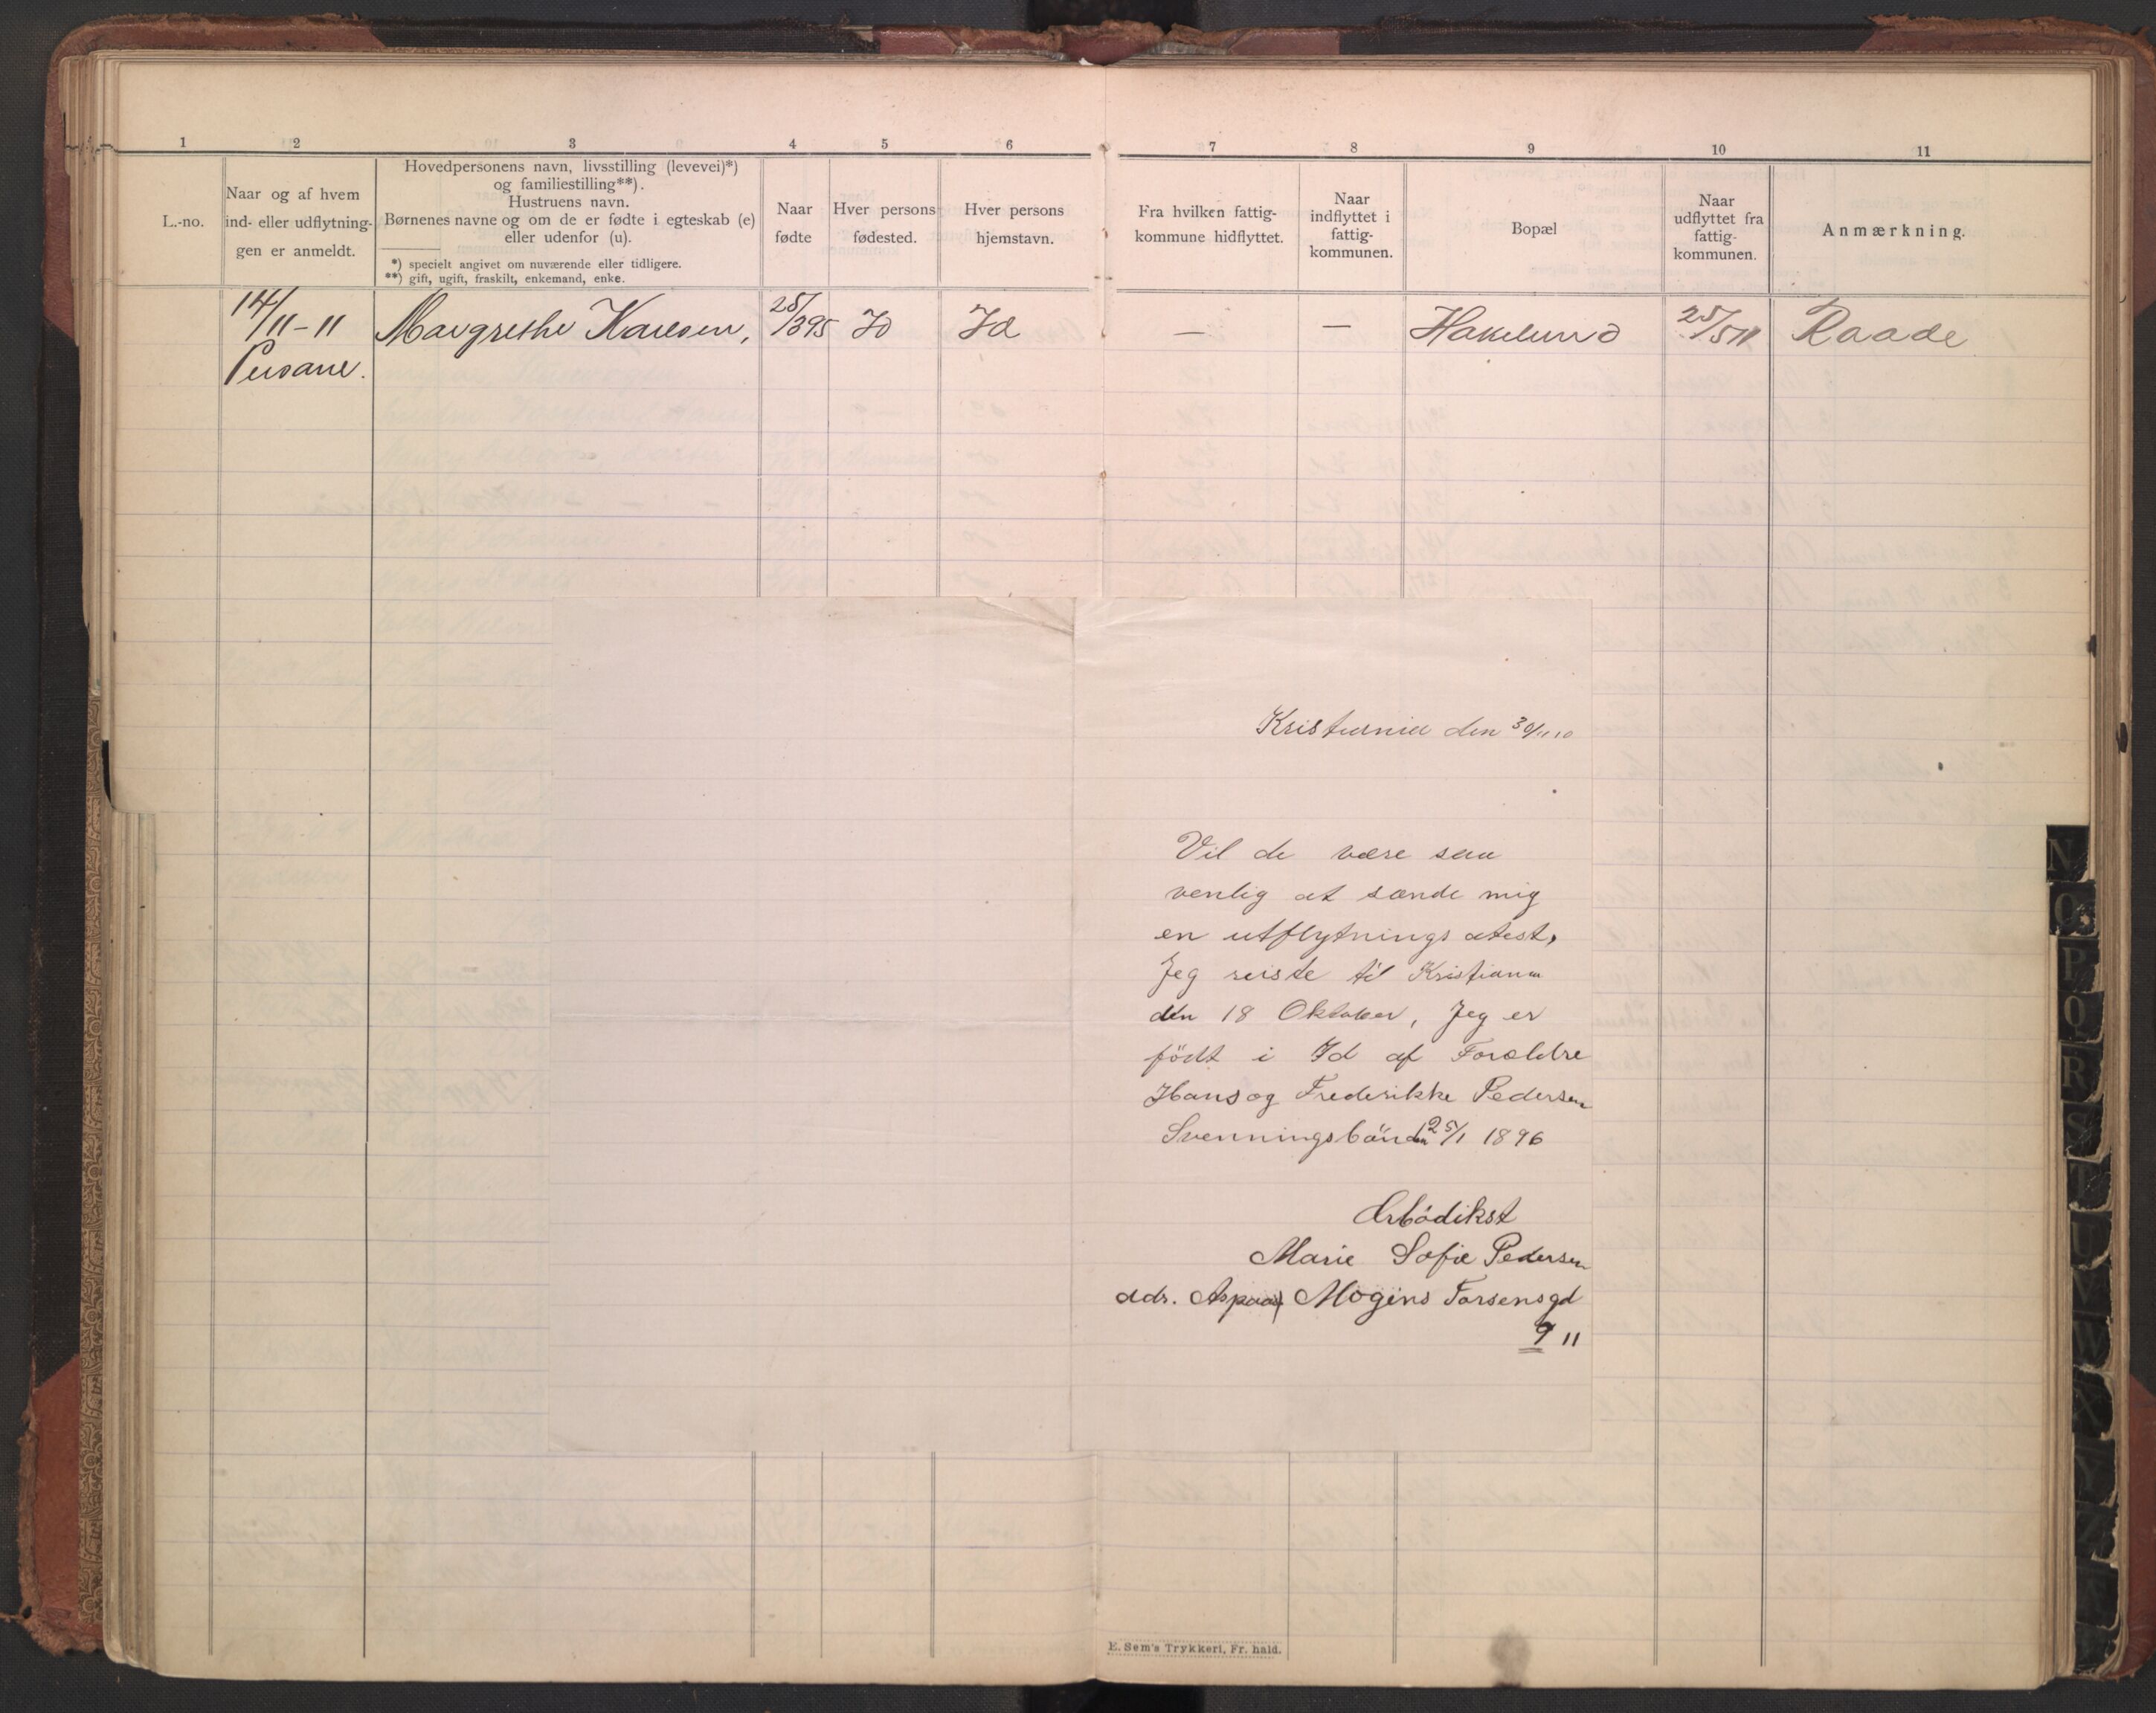 1 2 3 4 5 6 7 8 9 10 11
L.-no.
Naar og af hvem
ind- eller udflytnin-
gen er anmeldt.
Hovedpersonens navn, livsstilling (levevei)*)
og familiestilling**).
Hustruens navn.
Børnenes navne og om de er fødte i egteskab (e)
eller udenfor (u).
*) specielt angivet om nuværende eller tidligere.
**) gift, ugift, fraskilt, enkemand, enke.
Naar
fødte
Hver persons
fødested.
Hver persons
hjemstavn.
Fra hvilken fattig-
kommune hidflyttet.
Naar
indflyttet i
fattig-
kommunen.
Bopæl
Naar
udflyttet fra
fattig-
kommunen.
Anmærkning.
14/11-11 Margrethe Karlsen, 25/395 Id Id — — Hakelund 25/511 Raade
Kristiania den 30/11 10
Vil de være saa
venlig at sænde mig
en utflytnings atest,
Jeg reiste til Kristiania
den 18 Oktober, Jeg er
födt i Id af Forældre
Hans og Frederikke Pedersen
Svenningsbön den 25/1 1896
Ærbödikst
Marie Sofie Pedersen
adr. Aspaas Mogens Torsensgd
9 11
N
O
P
Q
R
S
T
U
V
W
X
Y
Z
E. Sem's Trykkeri, Fr. hald.